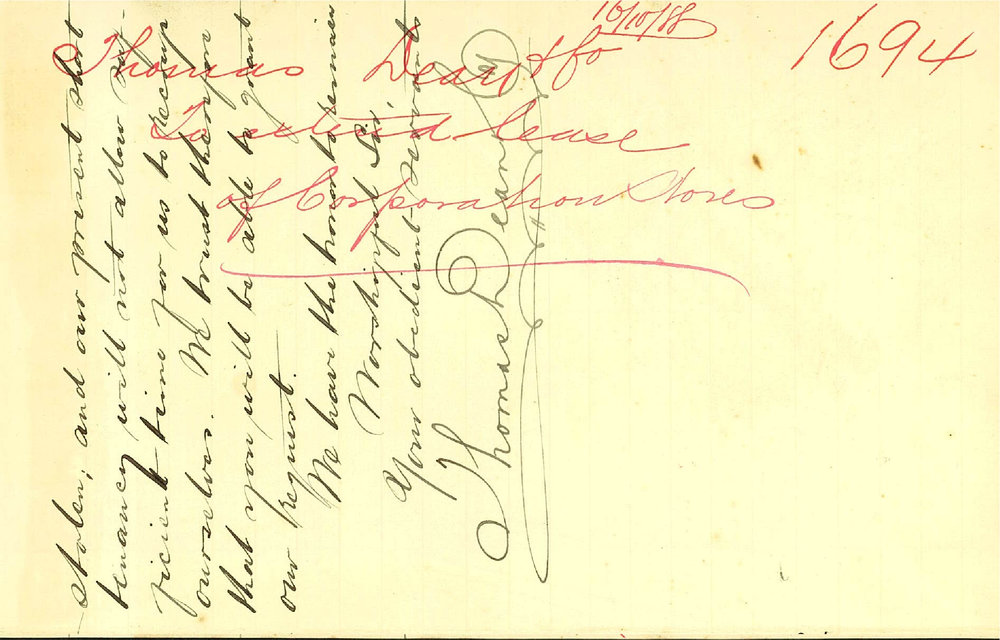 16/10/88
1694
Thomas Dean & Co
To extend lease
of Corporation Stores
stolen; and our present short
tenancy will not allow suf-
ficient time for us to recoup
ourselves. We trust therefore
that you will be able to grant
our request.
We have the honor to remain
Worshipful Sir,
Your obedient servants
Thomas Dean